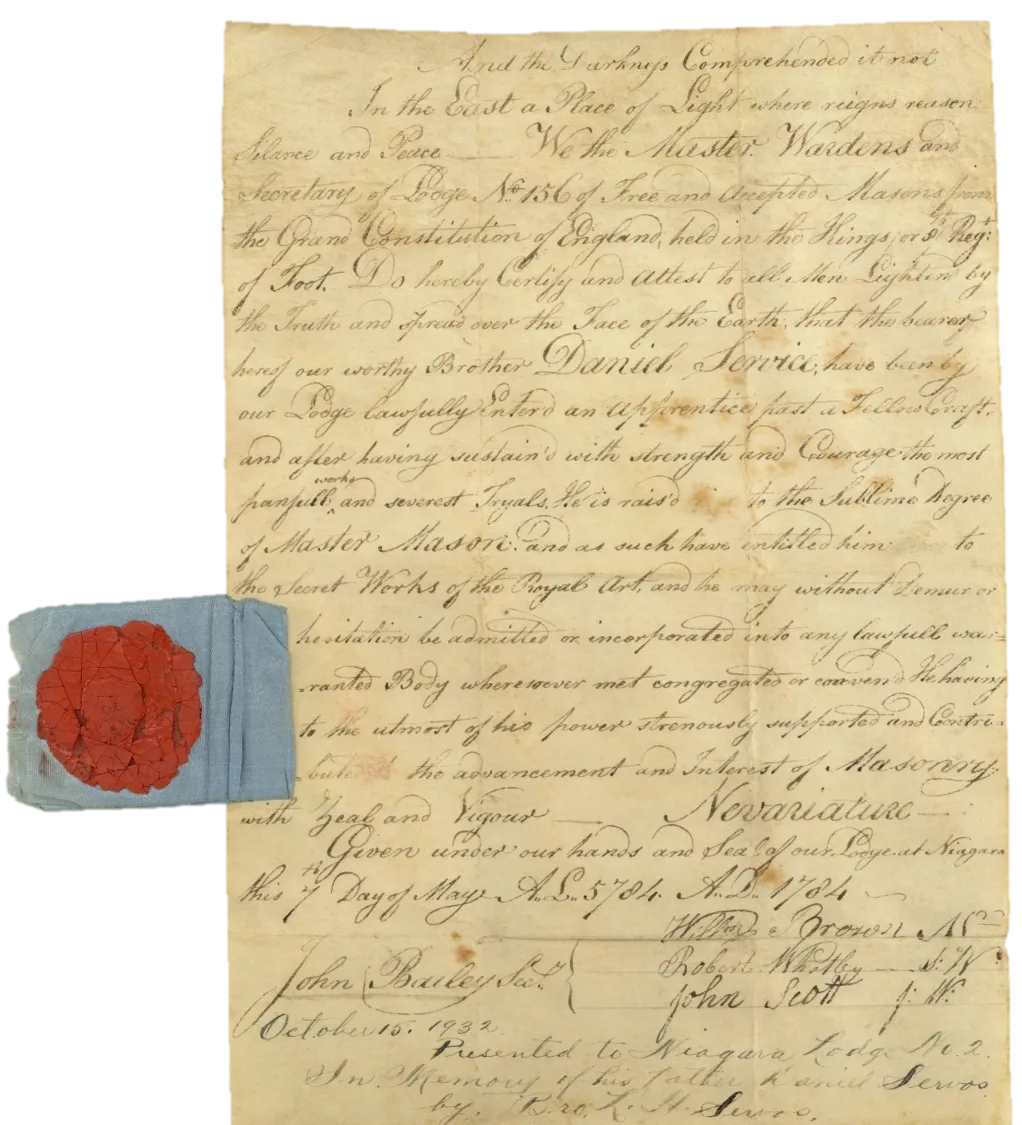 And the Darkness Comprehended it not
In the East a Place of Light where reigns reason
Silance and Peace — We the Master, Wardens and
Secretary of Lodge No. 156 of Free and Accepted Masons from
the Grand Constitution of England, held in the Kings or 8th Regt:
of Foot. Do hereby Certify and Attest to all Men Lightend by
the Truth and spread over the Face of the Earth, that the bearer
hereof our worthy Brother Daniel Service, have been by
our Lodge lawfully Enter'd an Apprentice past a Fellow Craft,
and after having sustain'd with strength and Courage the most
painfull works and severest Tryals, He is rais'd to the Sublime Degree
of Master Mason: and as such have entitled him to
the Secret Works of the Royal Art, and he may without Demur or
hesitation be admitted or incorporated into any lawfull war=
ranted Body wheresoever met congregated or conven'd He having
to the utmost of his power strenously supported and Contri=
bute the advancement and Interest of Masonry,
with Zeal and Vigour — Nevariature —
Given under our hands and Seal of our Lodge at Niagara
this 7th Day of May A.L. 5784. A.D. 1784
Willm Brown Mr
Robert Whitley — S: W:
John Bailey Secy. John Scott J: W:
October 15. 1932
Presented to Niagara Lodge No 2.
In Memory of his father Daniel Servos
by. Bro. Servos.